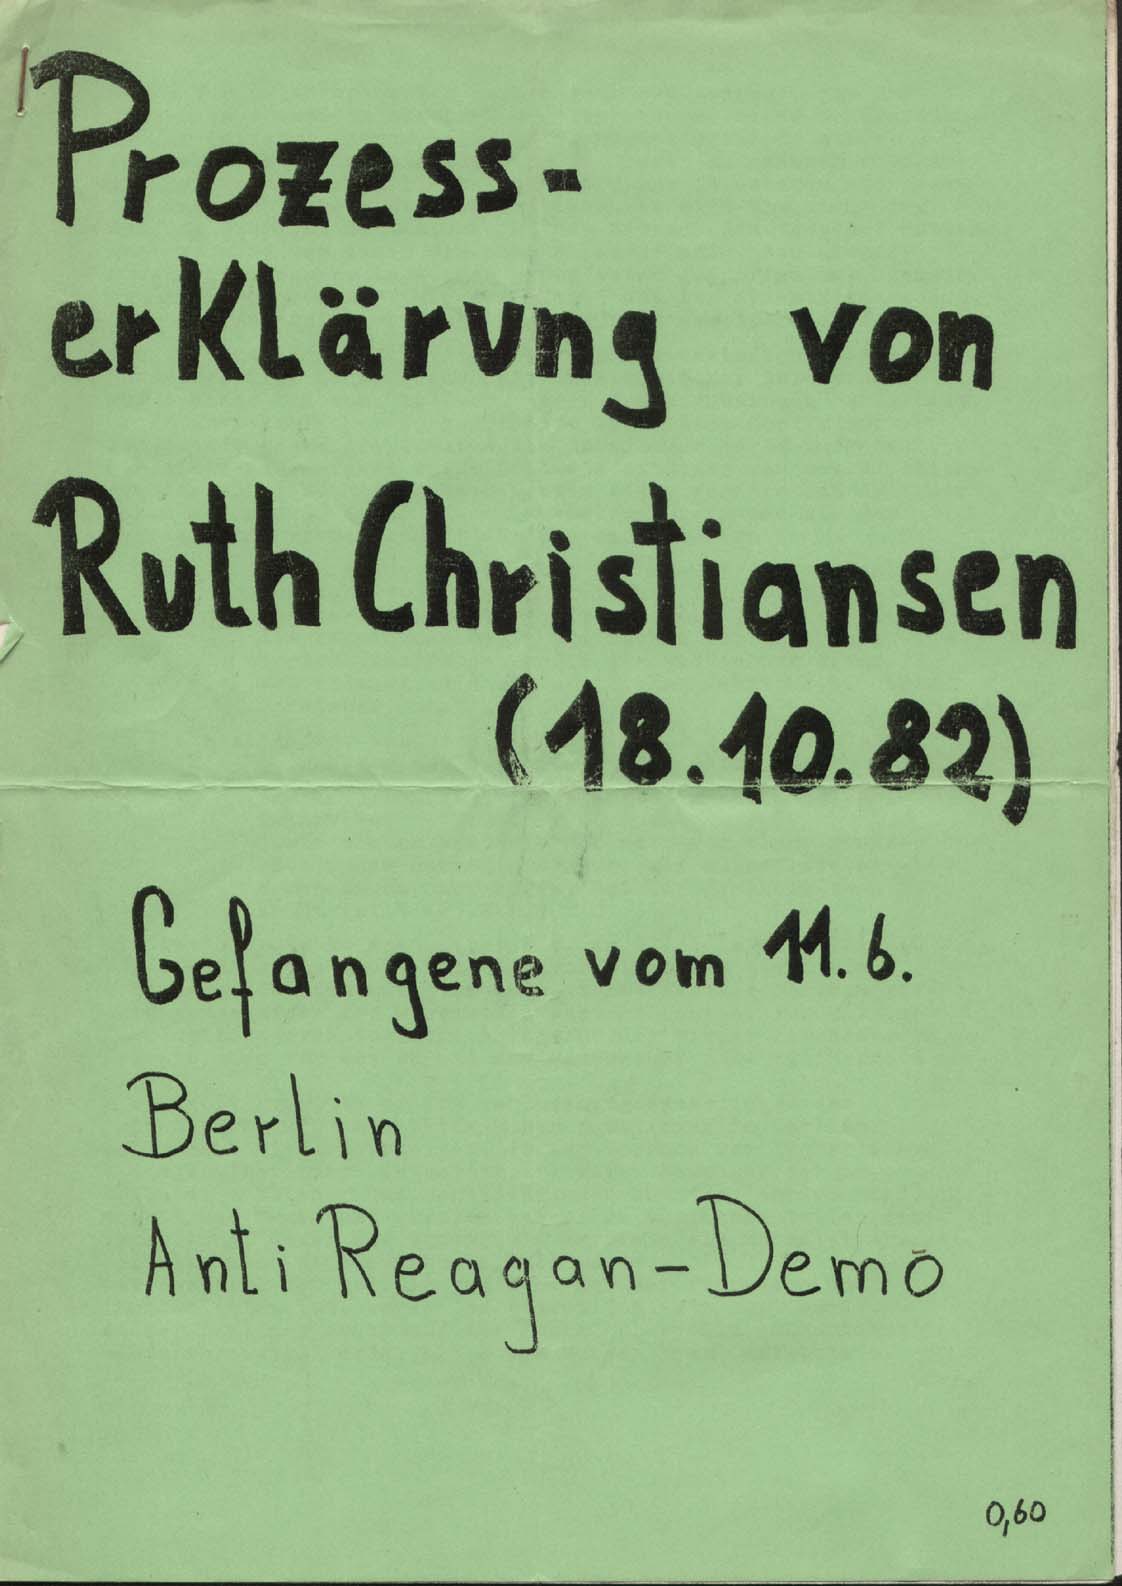 Prozess-
erklärung von
Ruth Christiansen
(18.10.82)
Gefangene vom 11.6.
Berlin
Anti Reagan-Demo
0,60